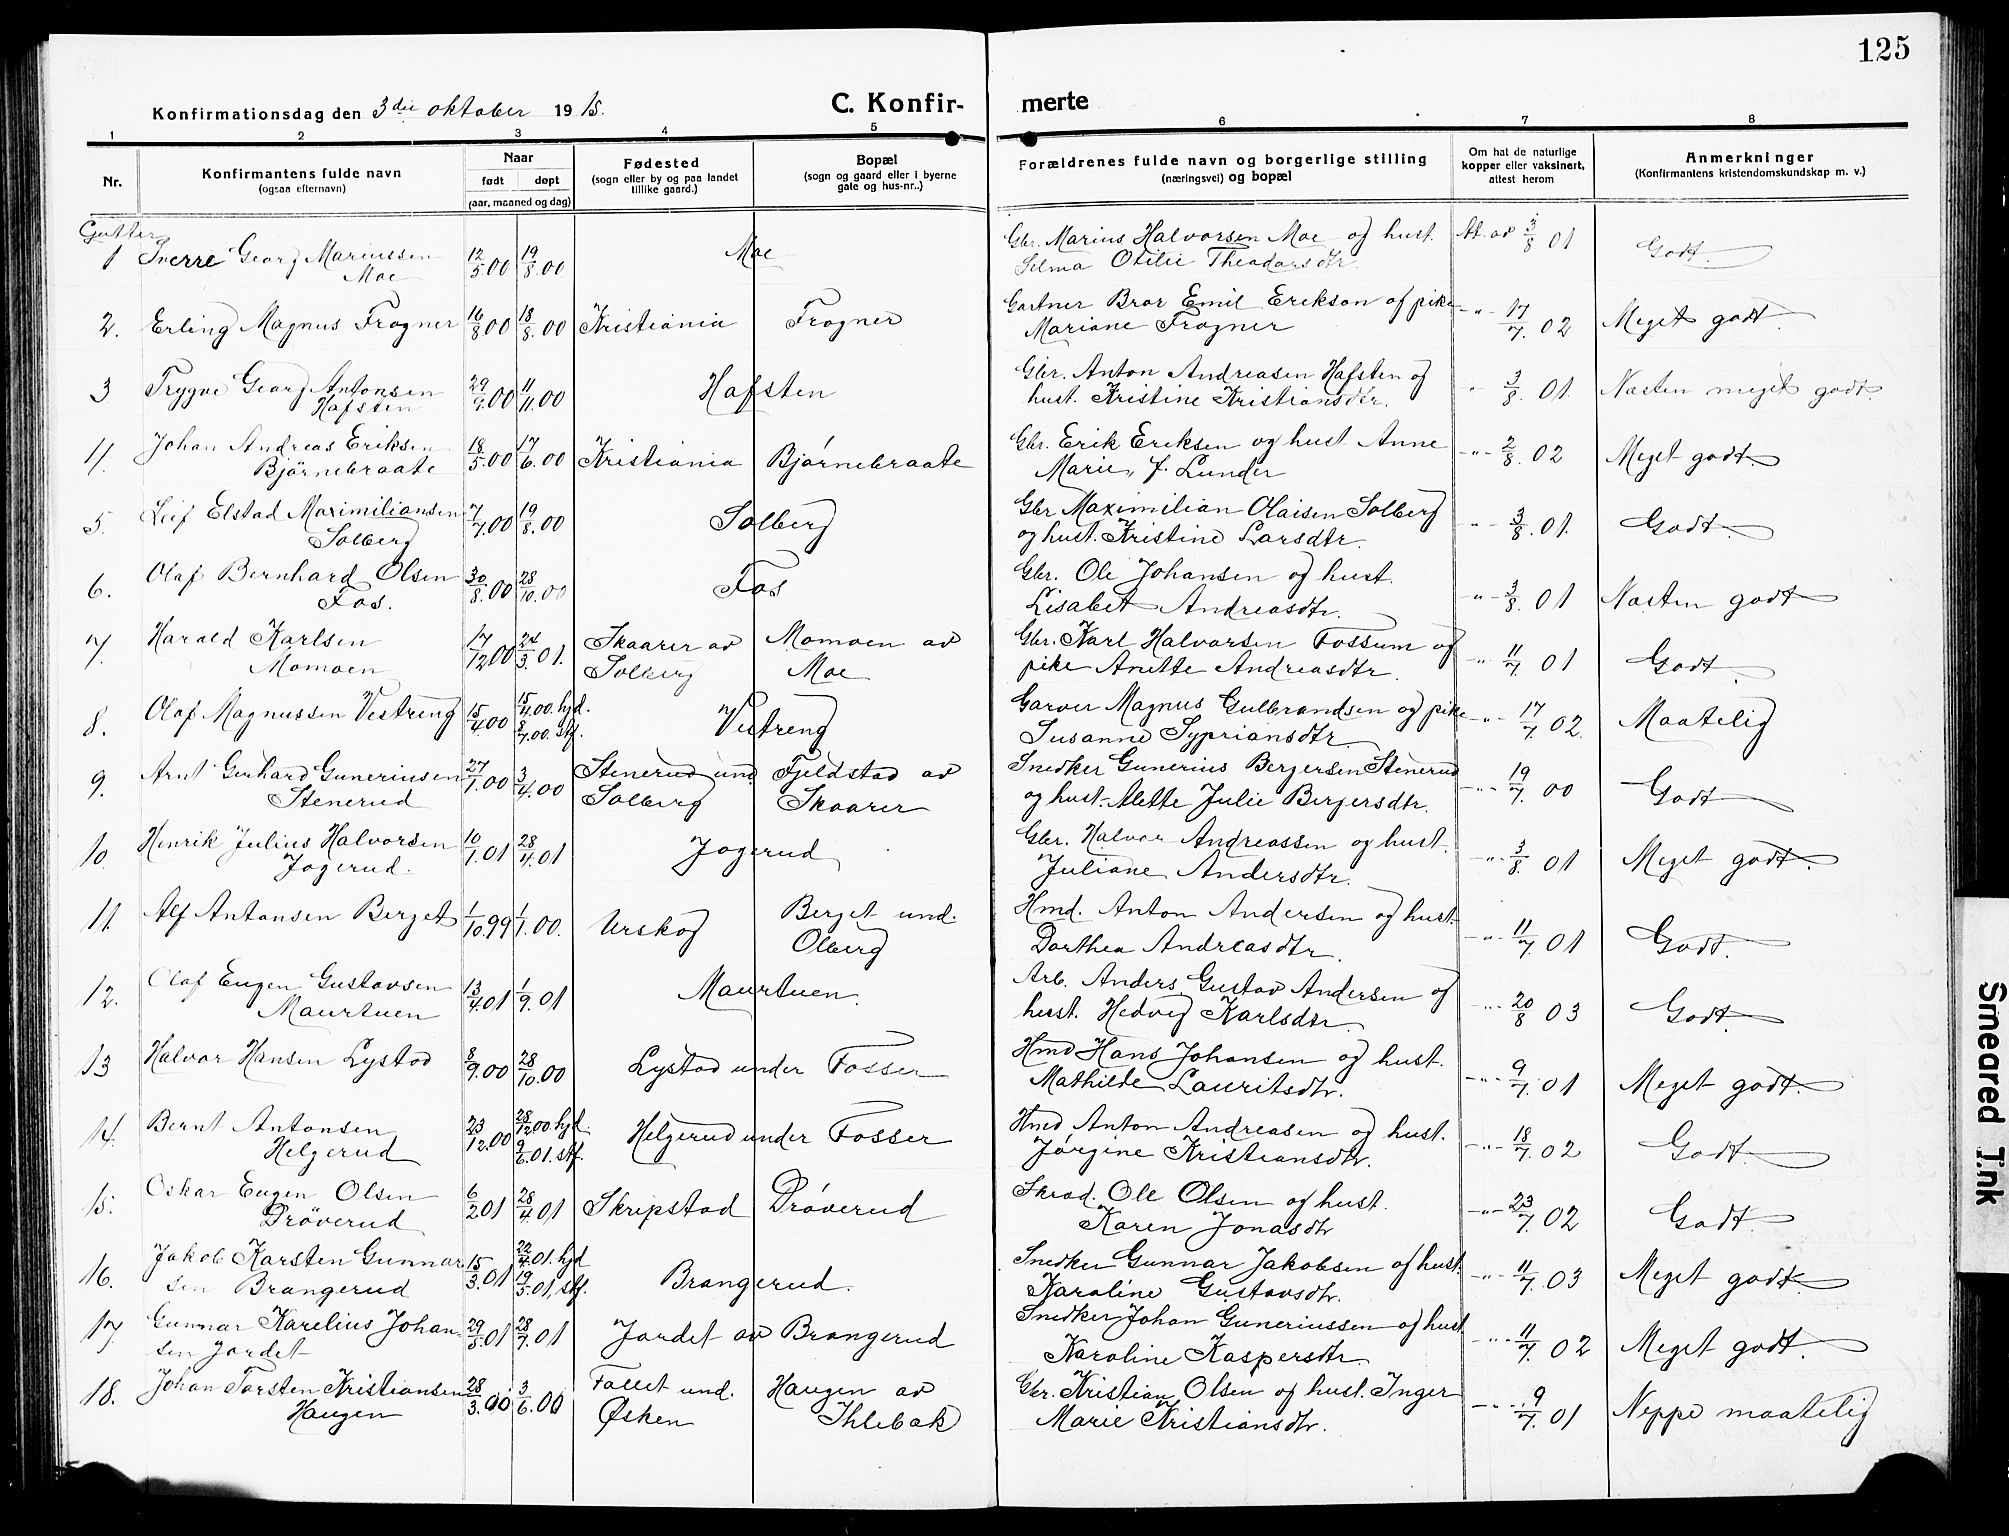 125
Konfirmationsdag den 3die oktober 1915.
C. Konfir- merte
1 2 3 4 5 6 7 8
Nr.
Konfirmantens fulde navn
(ogsaa efternavn)
Naar
født døpt
(aar, maaned og dag)
Fødested
(sogn eller by og paa landet
tillike gaard.)
Bopæl
(sogn og gaard eller i byerne
gate og hus-nr..)
Forældrenes fulde navn og borgerlige stilling
(næringsvei) og bopæl
Om hat de naturlige
kopper eller vaksinert,
attest herom
Anmerkninger
(Konfirmantens kristendomskundskap m. v.)
Gutter
1 Sverre Georg Mariussen 12/5.00 19/8.00 Moe Gbr. Marius Halvorsen Moe og hust. At. av 3/8 01 Godt.
Moe Selma Otilie Theodorsdtr.
2. Erling Magnus Frogner 16/8.00 18/8.00 Kristiania Frogner Gartner Bror Emil Erikson og pike -"- 17/7. 02 Meget godt.
Mariane Frogner
3 Trygve Georg Antonsen 29/9.00 11/11.00 Hafsten Gbr. Anton Andreasen Hafsten og " 3/8. 01. Næsten meget godt.
Hafsten hust. Kristine Kristiansdtr.
4. Johan Andreas Eriksen 18/5.00 17/6.00 Kristiania Bjørnebraate Gbr. Erik Eriksen og hust Anne -"- 2/8. 02 Meget godt.
Bjørnebraate Marie, f. Lunder
5. Leif Elstad Maximiliansen 7/7.00 19/8.00 Solberg Gbr Maximilian Olaisen Solberg -"- 3/8. 01. Godt.
Solberg og hust. Kristine Larsdtr.
6. Olaf Bernhard Olsen 30/8.00 28/10.00 Fos Gbr. Ole Johansen og hust. "- 3/8. 01 Næsten godt
Fos. Lisabet Andreasdtr.
7. Harald Karlsen 17/12.00 24/3.01. Skaarer av Momoen av Gbr. Karl Halvorsen Fossum og -"- 11/7. 01 Godt.
Momoen Solberg Moe pike Anette Andreasdtr.
8. Olaf Magnussen Vestreng 15/4.00 15/4.00. hjd. 8/7.00. stf. Vestreng Garver Magnus Gulbrandsen og pike -"- 17/7. 02. Maatelig
Susanne Sypriansdtr.
9. Arnt Gerhard Guneriusen 27/1.00 3/4.00 Stenerud und Fjeldstad av Snedker Gunerius Bergersen Stenerud -"- 19/7. 00 Godt
Stenerud Solberg Skaarer og hust. Alette Julie Bergersdtr.
10. Henrik Julius Halvorsen 10/1.01 28/4.01 Jogerud Gbr. Halvor Andreassen og hust. -"- 3/8. 01 Meget godt.
Jogerud. Juliane Andersdtr.
11. Alf Antonsen Berget 1/10.99 1/1.00. Urskog Berget und. Hmd. Anton Andersen og hust. -"- 11/7. 01 Godt.
Olberg Dorthea Andreasdtr.
12. Olaf Eugen Gustavsen 13/4.01 1/9.01 Maurtuen. Arb. Anders Gustav Andersen og -"- 20/8 03 Godt.
Maurtuen hust. Hedvig Karlsdtr.
13 Halvor Hansen Lystad 8/9.00 28/10.00 Lystad under Fosser Hmd Hans Johansen og hust. -"- 9/7. 01 Meget godt.
Mathilde Lauritsdtr.
14. Bernt Antonsen 23/12.00 28/12.00 hjd. 9/6.01. stf. Helgerud under Fosser Hmd Anton Andreasen og hust. -"- 18/7. 02 Godt.
Helgerud Jørgine Kristiansdtr.
15. Oskar Eugen Olsen 6/2.01 28/4.01 Skripstad Drøverud Skræd. Ole Olsen og hust. -"- 23/7. 02 Godt.
Drøverud Karen Jonasdtr
16. Jakob Karsten Gunnar 15/3.01 22/4.01. hjd 19/5.01, stf. Brangerud. Snedker Gunnar Jakobsen og hust. -"- 11/7. 03 Meget godt.
sen Brangerud Karoline Gustavsdtr.
17. Gunnar Karelius Johan- 29/5.01 28/7.01 Jordet av Brangerud Snedker Johan Guneriussen og hust -"- 11/7. 02 Meget godt.
sen Jordet Karoline Kaspersdtr
18. Johan Torsten Kristiansen 28/3.00 3/6.00 Fallet und. Haugen av Gbr. Kristian Olsen og hust. Inger -"- 9/7. 01 Neppe maatelig
Haugen Øsken Ihlebæk Marie Kristiansdtr.
Smeared Ink